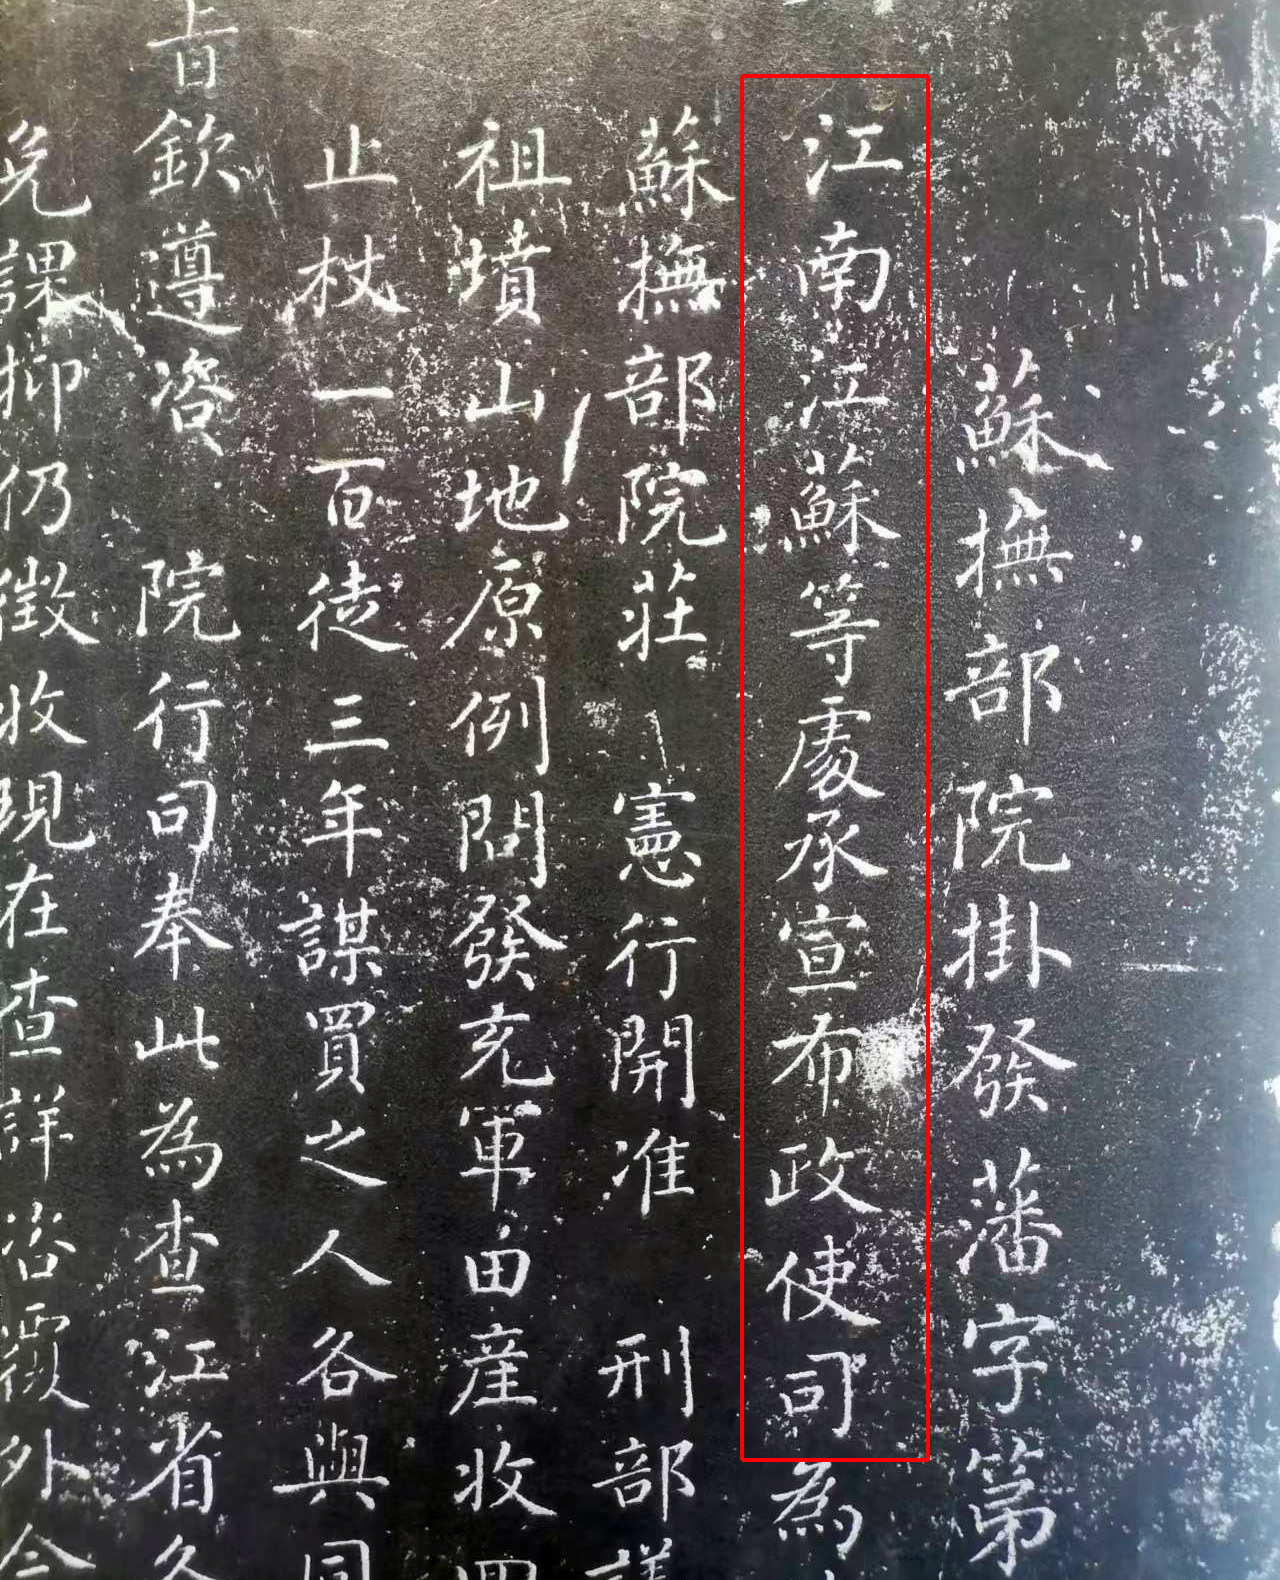 蘇撫部院掛發藩字第
江南江蘇等處承宣布政使司為
蘇撫部院莊 憲行開准 刑部
祖墳山地原例問發充軍田產收
止杖一百徒三年謀買之人各與同
旨欽遵咨 院行司奉此為查江省
免課抑仍徵收現在查詳咨覆外今